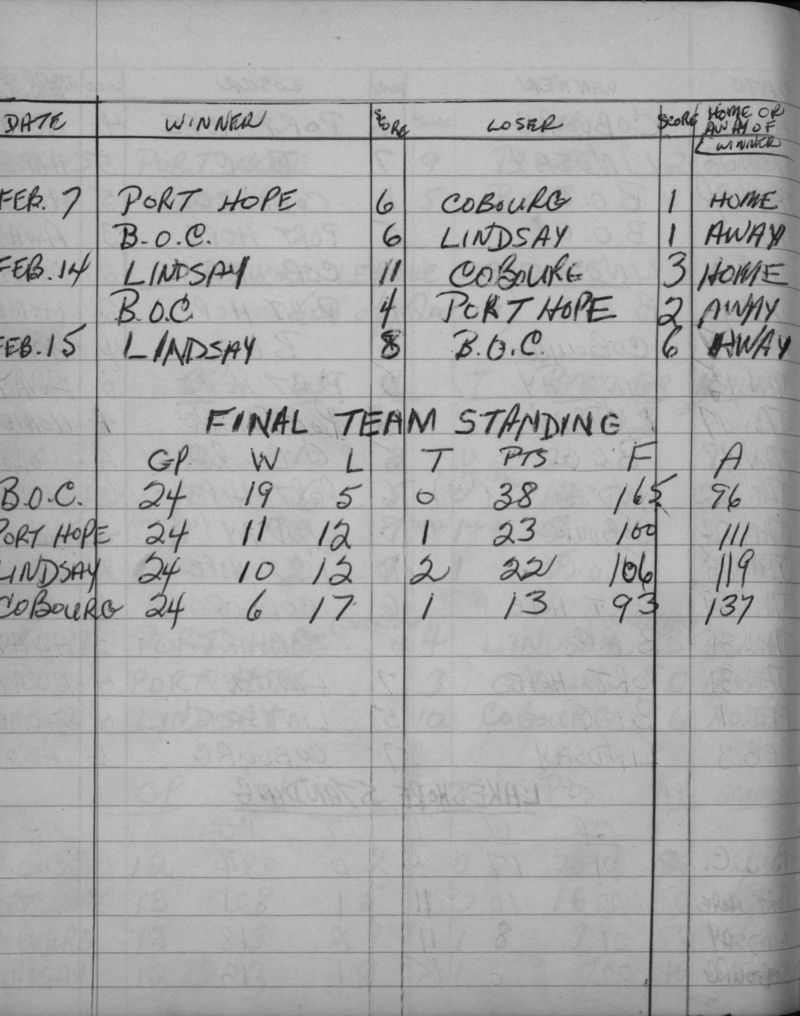 DATE WINNER SCORE LOSER SCORE HOME OR
AWAY OF
WINNER
FEB. 7 PORT HOPE 6 COBOURG 1 HOME
B.O.C. 6 LINDSAY 1 AWAY
FEB. 14 LINDSAY 11 COBOURG 3 HOME
B.O.C 4 PORT HOPE 2 AWAY
FEB. 15 LINDSAY 8 B.O.C. 6 AWAY
FINAL TEAM STANDING
GP. W L T PTS. F A
B.O.C. 24 19 5 0 38 165 96
PORT HOPE 24 11 12 1 23 100 111
LINDSAY 24 10 12 2 22 106 119
COBOURG 24 6 17 1 13 93 137